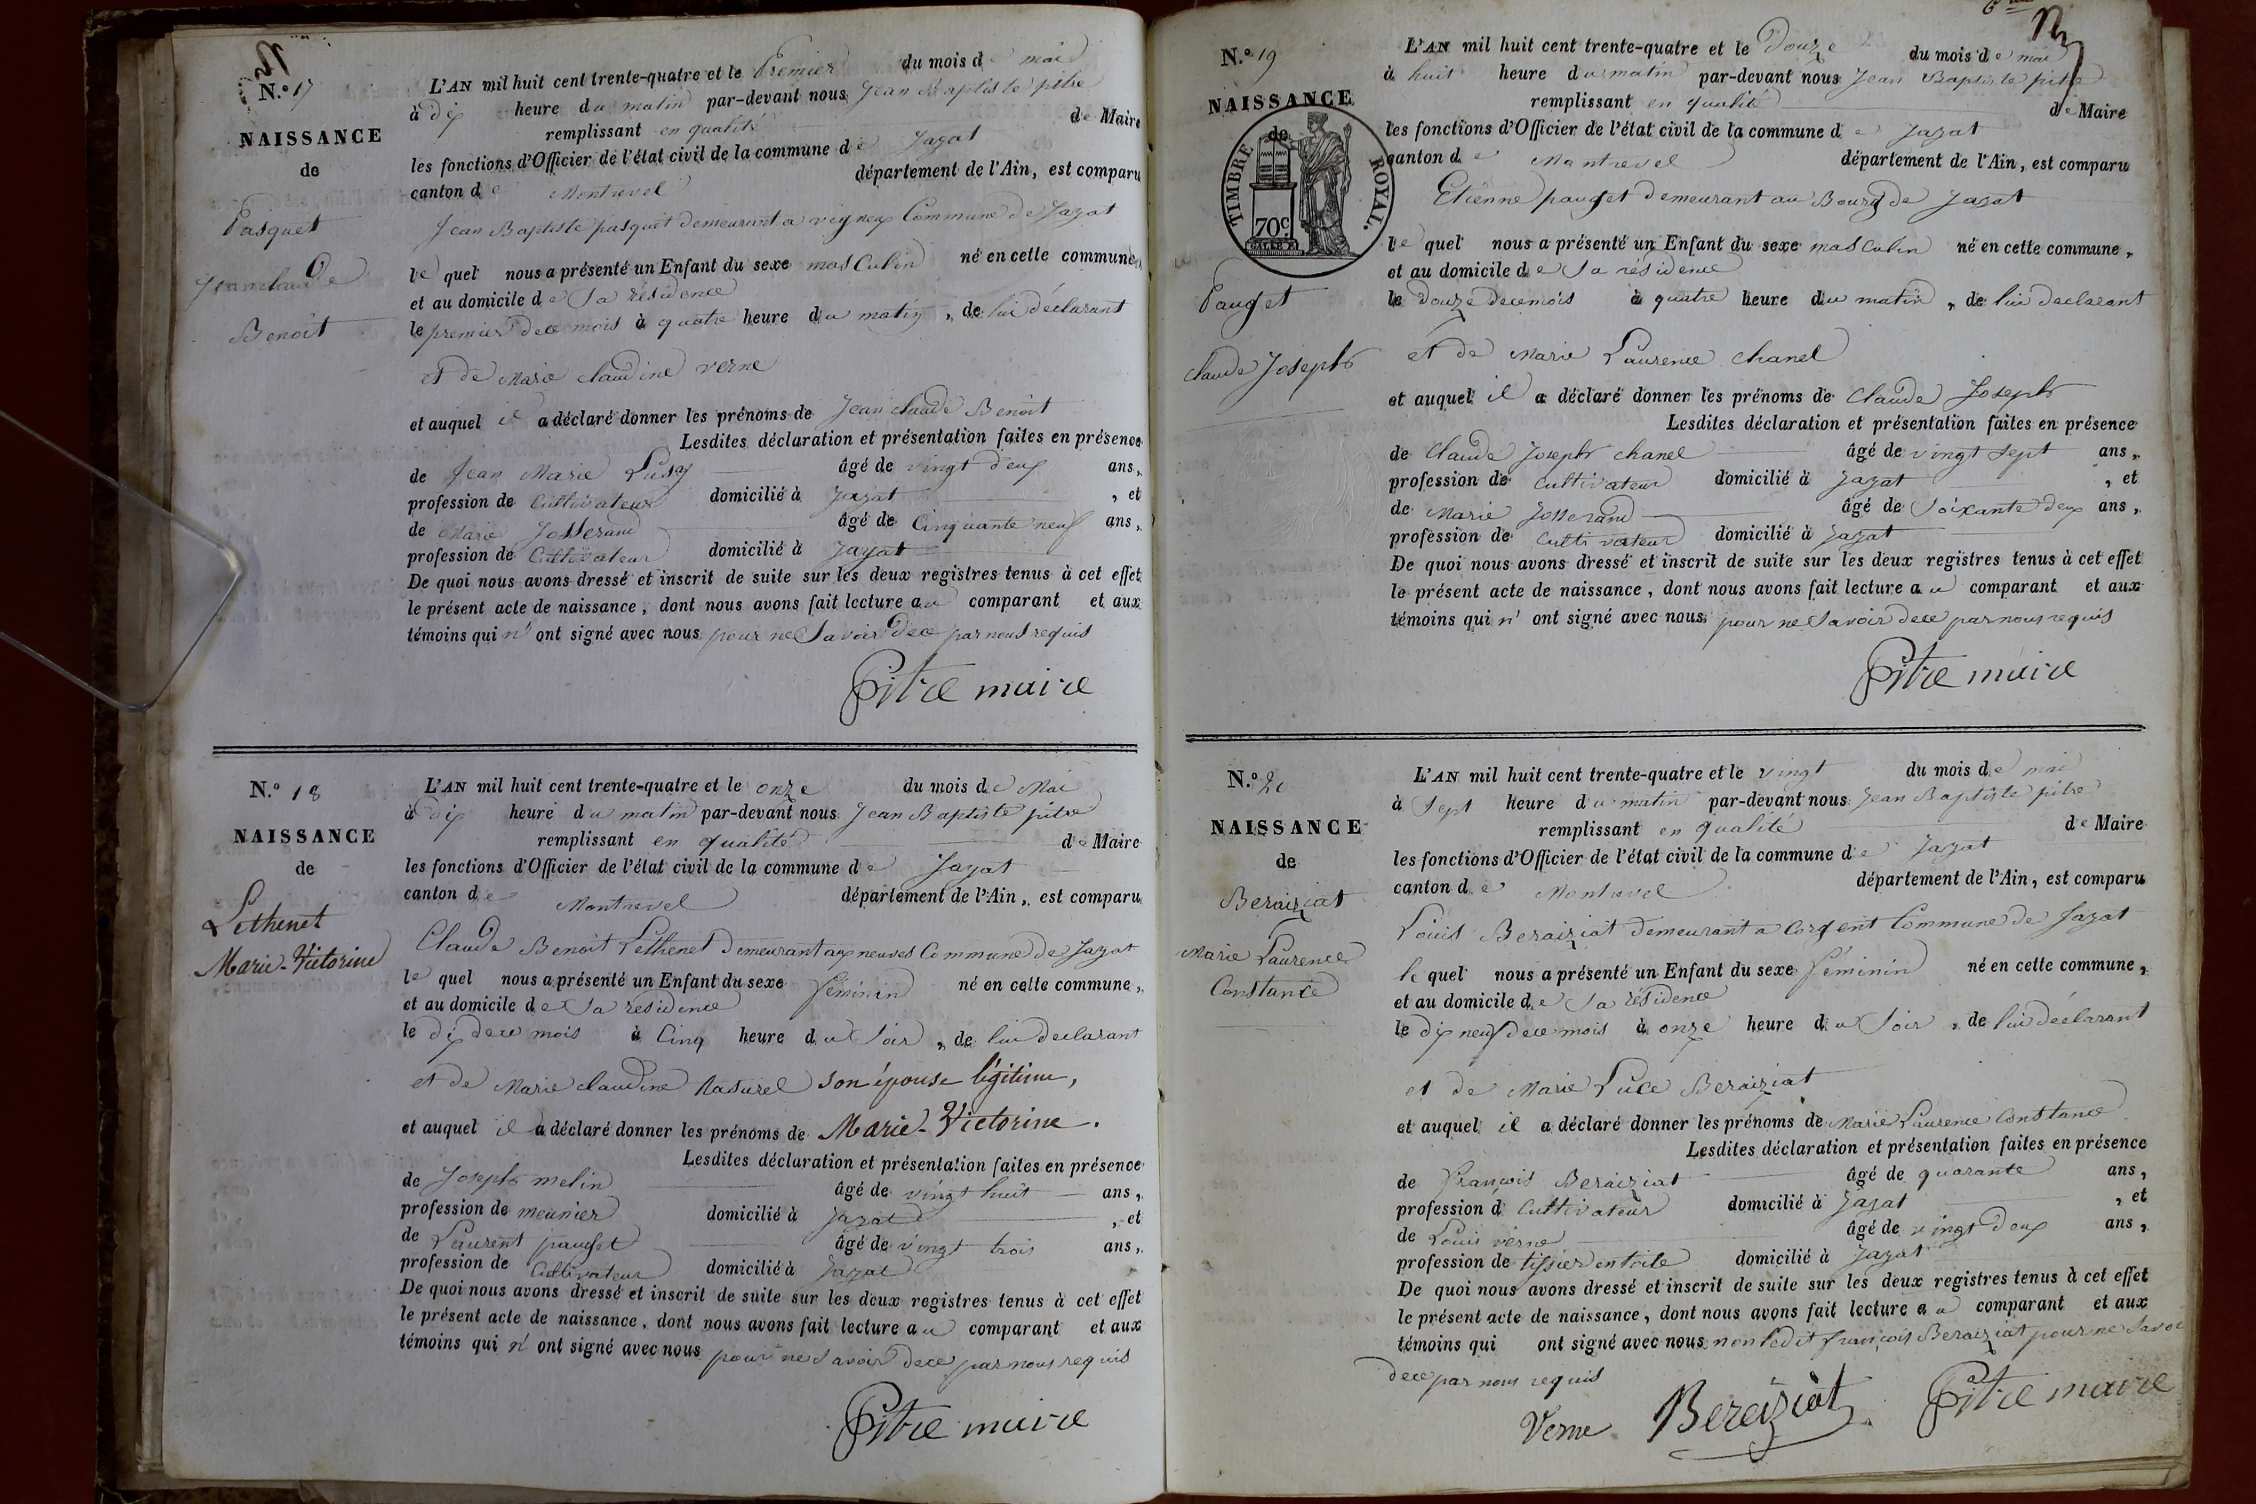 N.º 17
NAISSANCE
de
Pasquet
Jean claude
Benoit
L'AN mil huit cent trente-quatre et le Premier du mois de mai
à dix heure du matin par-devant nous Jean Baptiste pitre
remplissant en qualité de Maire
les fonctions d'Officier de l'état civil de la commune de Jayat
canton de Montrevel département de l'Ain, est comparu
Jean Baptiste pasquet demeurant a vigneux Commune de Jayat
le quel nous a présenté un Enfant du sexe masculin né en cette commune,
et au domicile de Sa résidence
le premier dece mois à quatre heure du matin, de lui déclarant
et de Marie claudine verne
et auquel il a déclaré donner les prénoms de Jean claude Benoit
Lesdites déclaration et présentation faites en présence
de Jean Marie Lusy âgé de vingt deux ans,
profession de Cultivateur domicilié à Jayat, et
de Marie Josserand âgé de Cinquante neuf ans,
profession de Cultivateur domicilié à Jayat
De quoi nous avons dressé et inscrit de suite sur les deux registres tenus à cet effet
le présent acte de naissance, dont nous avons fait lecture au comparant et aux
témoins qui n'ont signé avec nous pour ne Savoir dece par nous requis
Pitre maire
N.º 18
NAISSANCE
de
Lethenet
Marie-Victorine
L'AN mil huit cent trente-quatre et le onze du mois de Mai
à dix heure du matin par-devant nous Jean Baptiste pitre
remplissant en qualité de Maire
les fonctions d'Officier de l'état civil de la commune de Jayat
canton de Montrevel département de l'Ain, est comparu
Claude Benoit Lethenet Demeurant aux neuves Commune de Jayat
le quel nous a présenté un Enfant du sexe féminin né en cette commune,
et au domicile de Sa résidence
le dix dece mois à Cinq heure du Soir, de lui declarant
et de Marie claudine Nasurel son épouse légitime,
et auquel il a déclaré donner les prénoms de Marie-Victorine.
Lesdites déclaration et présentation faites en présence
de Joseph melin âgé de vingt huit ans,
profession de meunier domicilié à Jayat, et
de Laurent pauget âgé de vingt trois ans,
profession de Cultivateur domicilié à Jayat
De quoi nous avons dressé et inscrit de suite sur les deux registres tenus à cet effet
le présent acte de naissance, dont nous avons fait lecture au comparant et aux
témoins qui n'ont signé avec nous pour ne Savoir dece par nous requis
Pitre maire
N.º 19
NAISSANCE
de
TIMBRE ROYAL.
70c.
Pauget
claude Joseph
L'AN mil huit cent trente-quatre et le Douze du mois de mai
à huit heure du matin par-devant nous Jean Baptiste pitre
remplissant en qualité de Maire
les fonctions d'Officier de l'état civil de la commune de Jayat
canton de Montrevel département de l'Ain, est comparu
Etienne pauget demeurant au Bourg de Jayat
le quel nous a présenté un Enfant du sexe masculin né en cette commune,
et au domicile de Sa résidence
le douze dece mois à quatre heure du matin, de lui declarant
et de Marie Laurence chanel
et auquel il a déclaré donner les prénoms de Claude Joseph
Lesdites déclaration et présentation faites en présence
de Claude Joseph chanel âgé de vingt sept ans,
profession de Cultivateur domicilié à Jayat, et
de Marie Josserand âgé de Soixante deux ans,
profession de Cultivateur domicilié à Jayat
De quoi nous avons dressé et inscrit de suite sur les deux registres tenus à cet effet
le présent acte de naissance, dont nous avons fait lecture au comparant et aux
témoins qui n'ont signé avec nous pour ne Savoir dece par nous requis
Pitre maire
N.º 20
NAISSANCE
de
Beraiziat
Marie Laurence
Constance
L'AN mil huit cent trente-quatre et le vingt du mois de mai
à Sept heure du matin par-devant nous Jean Baptiste pitre
remplissant en qualité de Maire
les fonctions d'Officier de l'état civil de la commune de Jayat
canton de Montrevel département de l'Ain, est comparu
Louis Beraiziat demeurant a Corgent Commune de Jayat
le quel nous a présenté un Enfant du sexe féminin né en cette commune,
et au domicile de Sa résidence
le dix neuf dece mois à onze heure du Soir, de lui déclarant
et de Marie Luce Beraiziat
et auquel il a déclaré donner les prénoms de Marie Laurence Constance
Lesdites déclaration et présentation faites en présence
de François Beraiziat âgé de quarante ans,
profession d Cultivateur domicilié à Jayat, et
de Louis verne âgé de vingt deux ans,
profession de tissier en toile domicilié à Jayat
De quoi nous avons dressé et inscrit de suite sur les deux registres tenus à cet effet
le présent acte de naissance, dont nous avons fait lecture au comparant et aux
témoins qui ont signé avec nous non ledit françois Beraiziat pour ne Savoir
dece par nous requis
Verne Beraiziat Pitre maire